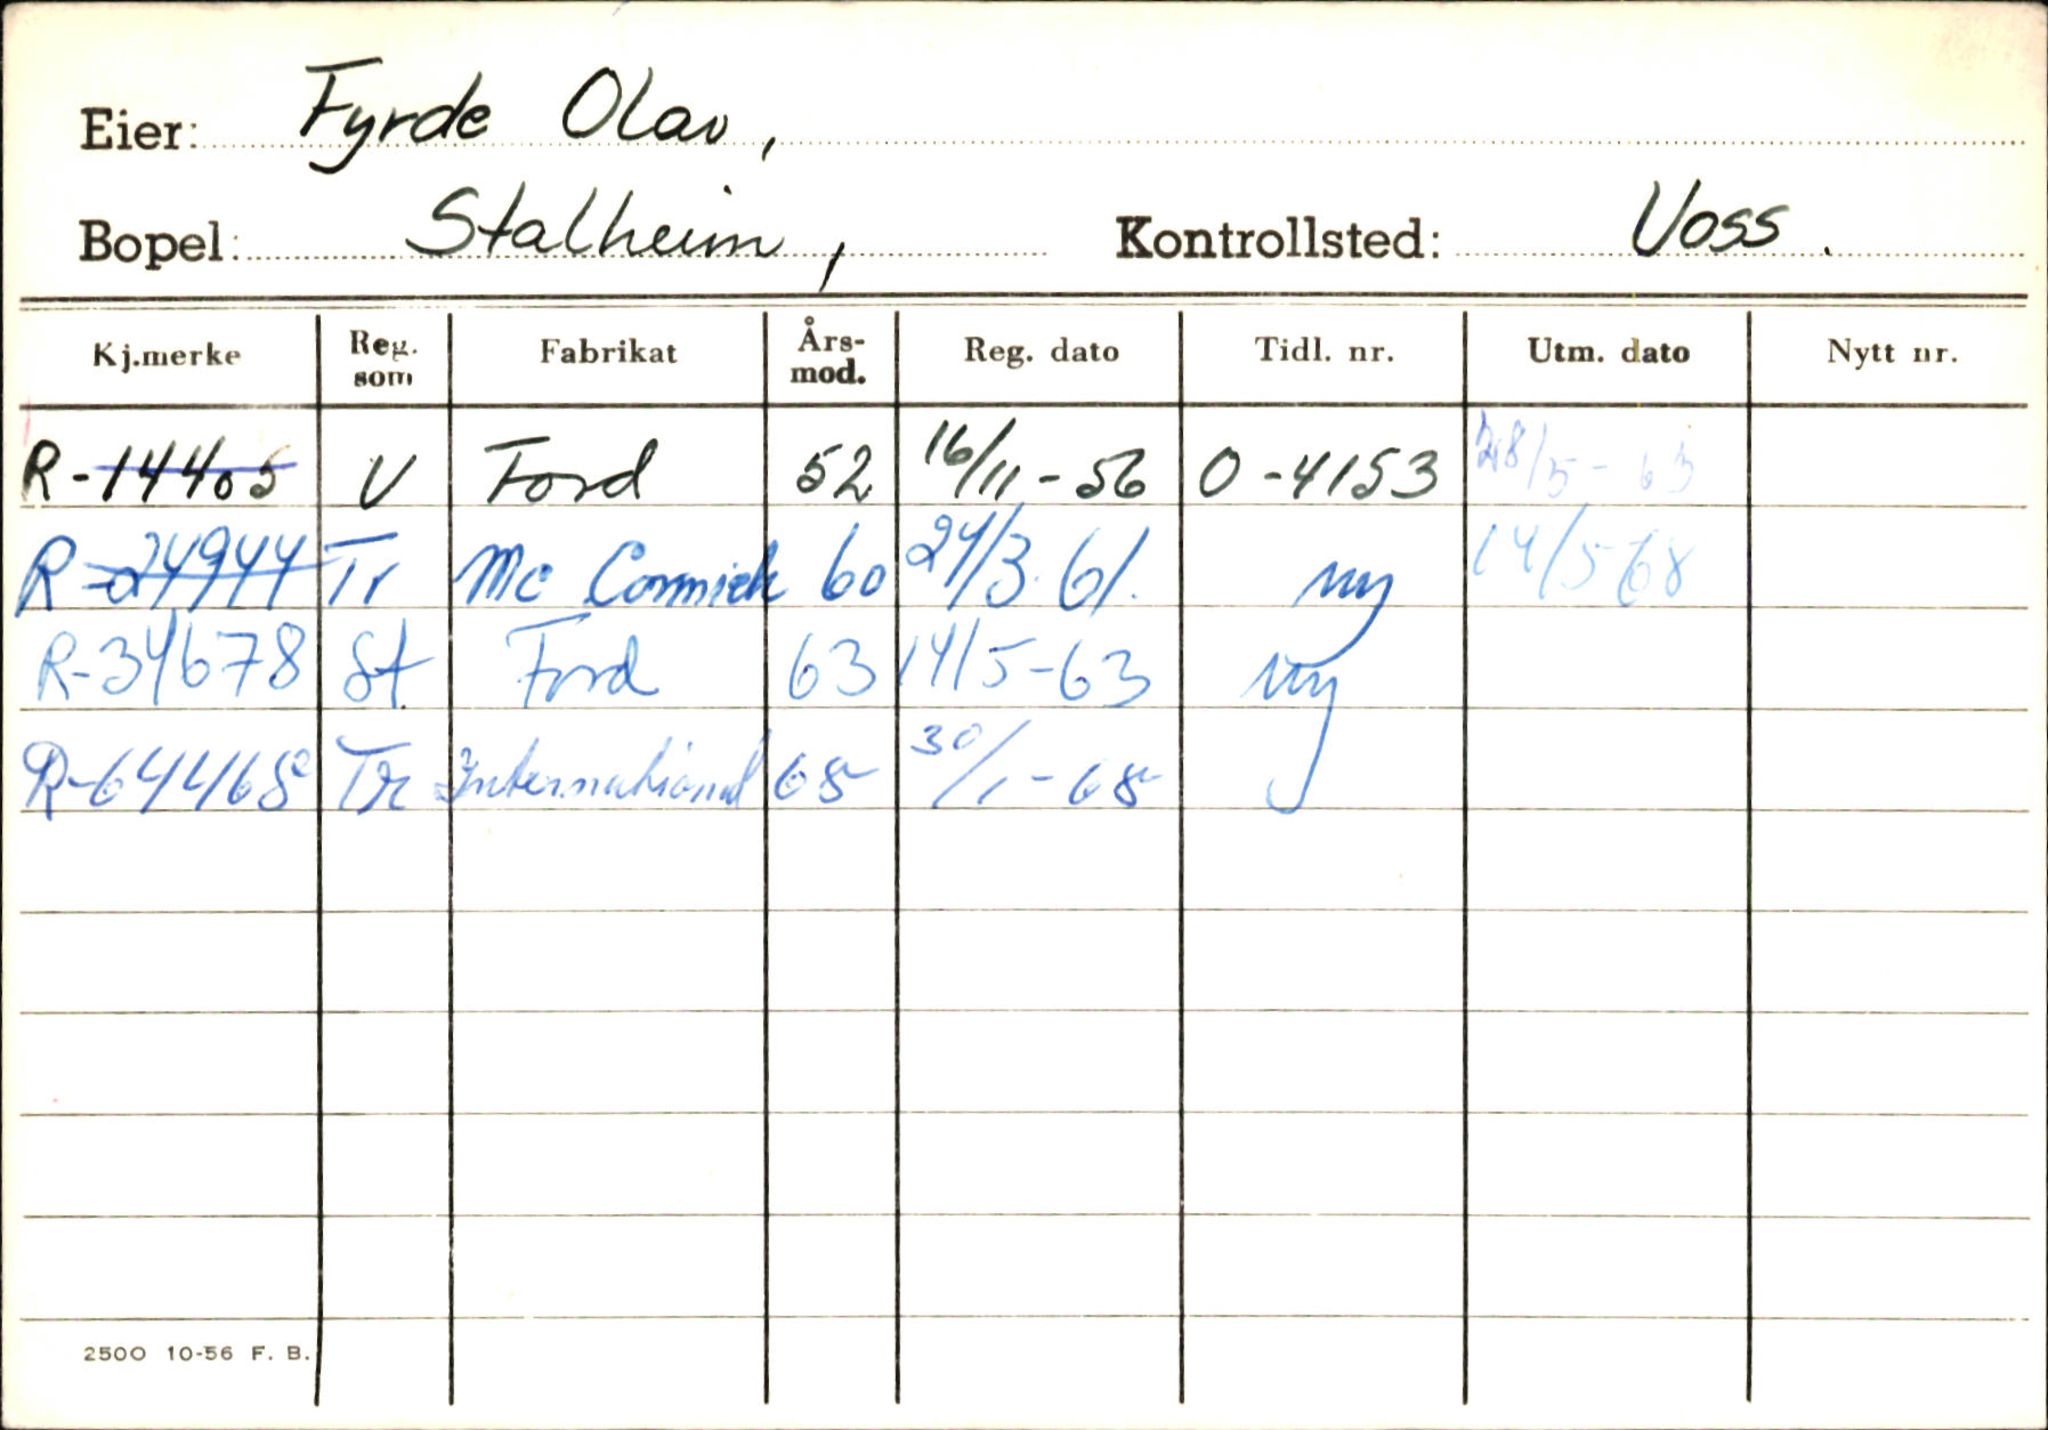 Eier: Fyrde Olav,
Bopel: Stalheim, Kontrollsted: Voss.
Kj.merke Reg. som Fabrikat Års-mod. Reg. dato Tidl. nr. Utm. dato Nytt nr.
R-14405 V Ford 52 16/11-56 O-4153 28/5-63
R-24944 Tr Mc Cormick 60 24/3.61. ny 14/5 68
R-34678 St. Ford 63 14/5-63 ny
R-64468 Tr International 68 30/1-68
2500 10-56 F. B.